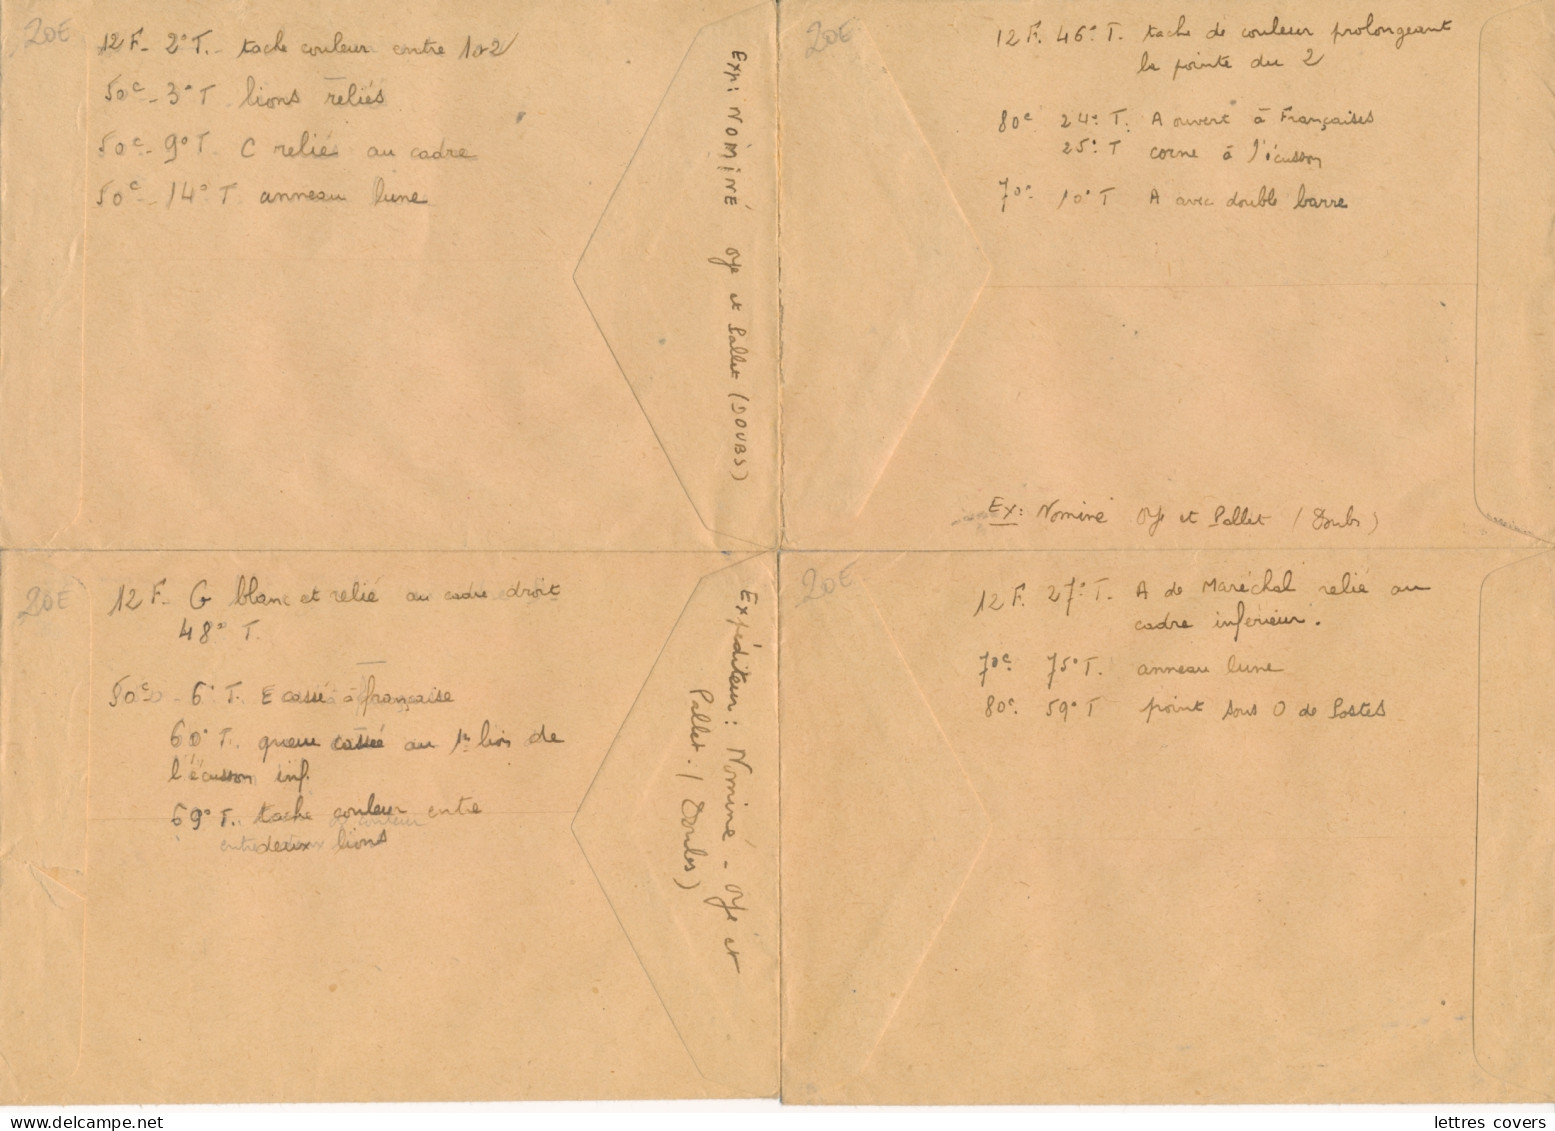 20E
12 F. 2° T. tache couleur entre 1 et 2
50c. 3° T lions reliés
50c. 9° T. C relié au cadre
50c. 14° T anneau lune
Exp: NOMINÉ Oye et Pallet (DOUBS)
20E
12 F. 46° T. tache de couleur prolongeant
la pointe du 2
80c 24° T. A ouvert à Françaises
25° T corne à l'écusson
70c. 10° T A avec double barre
Ex: Nominé Oye et Pallet (Doubs)
20E
12 F. G blanc et relié au cadre droit
48° T.
50c. 6° T. E cassé à française
60° T. queue cassée au 1er lion de
l'écusson inf.
69° T. tache couleur entre
deux lions
Expéditeur: Nominé - Oye et
Pallet. (Doubs)
20E
12 F. 27° T. A de Maréchal relié au
cadre inférieur.
70c. 75° T. anneau lune
80c. 59° T point sous O de Postes
lettres covers